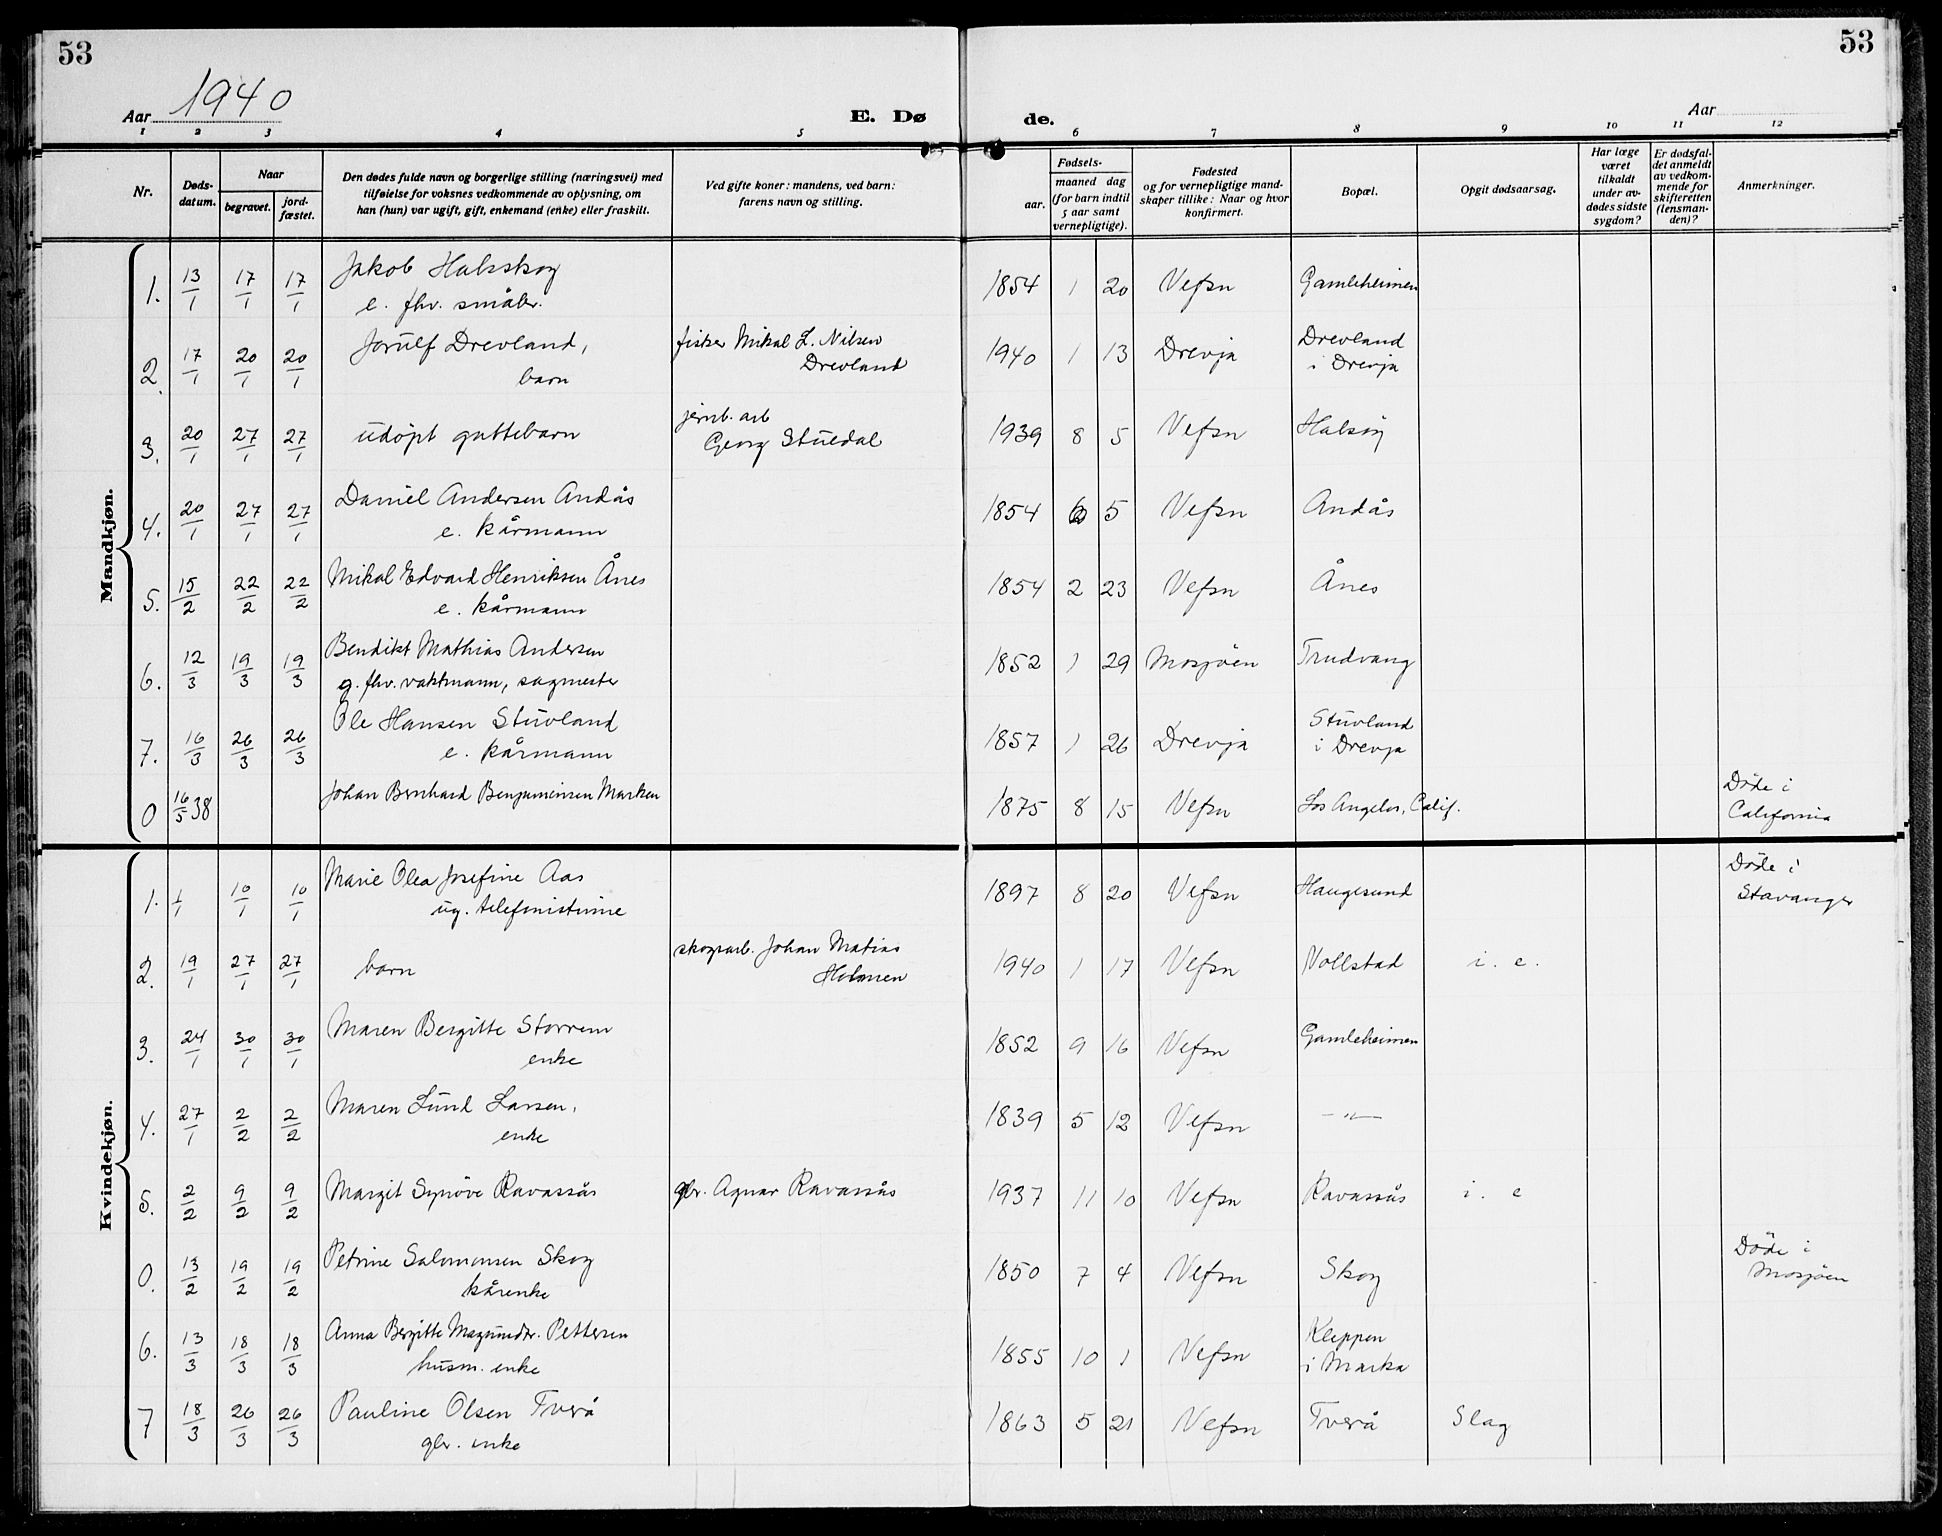 53 53
Aar 1940 E. Dø de. Aar
1 2 3 4 5 6 7 8 9 10 11 12
Nr.
Døds-
datum.
Naar
begravet.
jord-
fæstet.
Den dødes fulde navn og borgerlige stilling (næringsvei) med
tilføielse for voksnes vedkommende av oplysning, om
han (hun) var ugift, gift, enkemand (enke) eller fraskilt.
Ved gifte koner: mandens, ved barn:
farens navn og stilling.
Fødsels-
aar.
maaned dag
(for barn indtil
5 aar samt
vernepligtige).
Fødested
og for vernepligtige mand-
skaper tillike: Naar og hvor
konfirmert.
Bopæl.
Opgit dødsaarsag.
Har læge
været
tilkaldt
under av-
dødes sidste
sygdom?
Er dødsfal-
det anmeldt
av vedkom-
mende for
skifteretten
(lensman-
den)?
Anmerkninger.
Mandkjøn.
1. 13/1 17/1 17/1 Jakob Halsskog 1854 1 20 Vefsn Gamleheimen
e. fhv. småbr.
2. 17/1 20/1 20/1 Jorulf Drevland, fisker Mikal L. Nilsen 1940 1 13 Drevja Drevland
barn Drevland i Drevja
3. 20/1 27/1 27/1 udøpt guttebarn jernb. arb 1939 8 5 Vefsn Halsøy
Georg Stuedal
4. 20/1 27/1 27/1 Daniel Andersen Andås 1854 6 5 Vefsn Andås
e. kårmann
5. 15/2 22/2 22/2 Mikal Edvard Henriksen Ånes 1854 2 23 Vefsn Ånes
e. kårmann
6. 12/3 19/3 19/3 Bendikt Mathias Andersen 1852 1 29 Mosjøen Trudvang
g. fhv. vaktmann, sagmester
7. 16/3 26/3 26/3 Ole Hansen Stuvland 1857 1 26 Drevja Stuvland
e. kårmann i Drevja
0 16/5 38 Johan Bernhard Benjaminsen Marken 1875 8 15 Vefsn Los Angelos, Calif. Døde i
California
Kvindekjøn.
1. 1/1 10/1 10/1 Marie Olea Josefine Aas 1897 8 20 Vefsn Haugesund Døde i
ug. telefonistinne Stavanger
2. 19/1 27/1 27/1 barn skogsarb. Johan Matias 1940 1 17 Vefsn Vollstad i. e.
Holmen
3. 24/1 30/1 30/1 Maren Bergitte Storrem 1852 9 16 Vefsn Gamleheimen
enke
4. 27/1 2/2 2/2 Maren Lund Larsen, 1839 5 12 Vefsn —"—
enke
5. 2/2 9/2 9/2 Margit Synøve Ravassås gbr. Agnar Ravassås 1937 11 10 Vefsn Ravassås i. e
0. 13/2 19/2 19/2 Petrine Salomonsen Skog 1850 7 4 Vefsn Skog Døde i
kårenke Mosjøen
6. 13/3 18/3 18/3 Anna Bergitte Magnusdtr. Pettersen 1855 10 1 Vefsn Kleppen
husm. enke i Marka
7 18/3 26/3 26/3 Pauline Olsen Tverå 1863 5 21 Vefsn Tverå Slag
gbr. enke